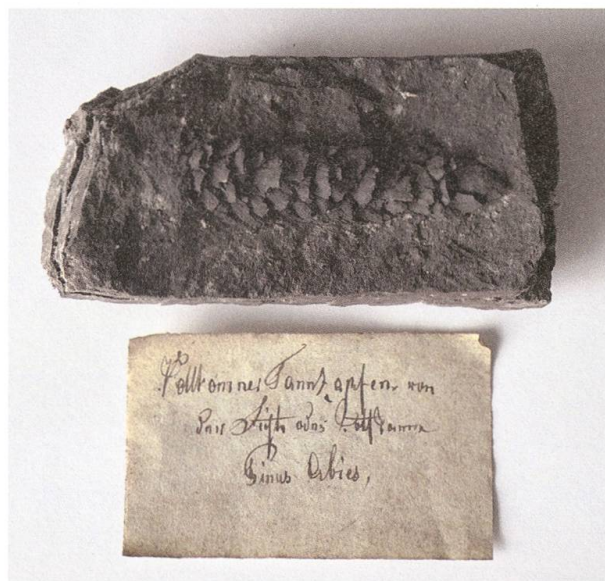 Vollkomner Tannzapfen von
der Fichte oder Rothtanne
Pinus Abies,